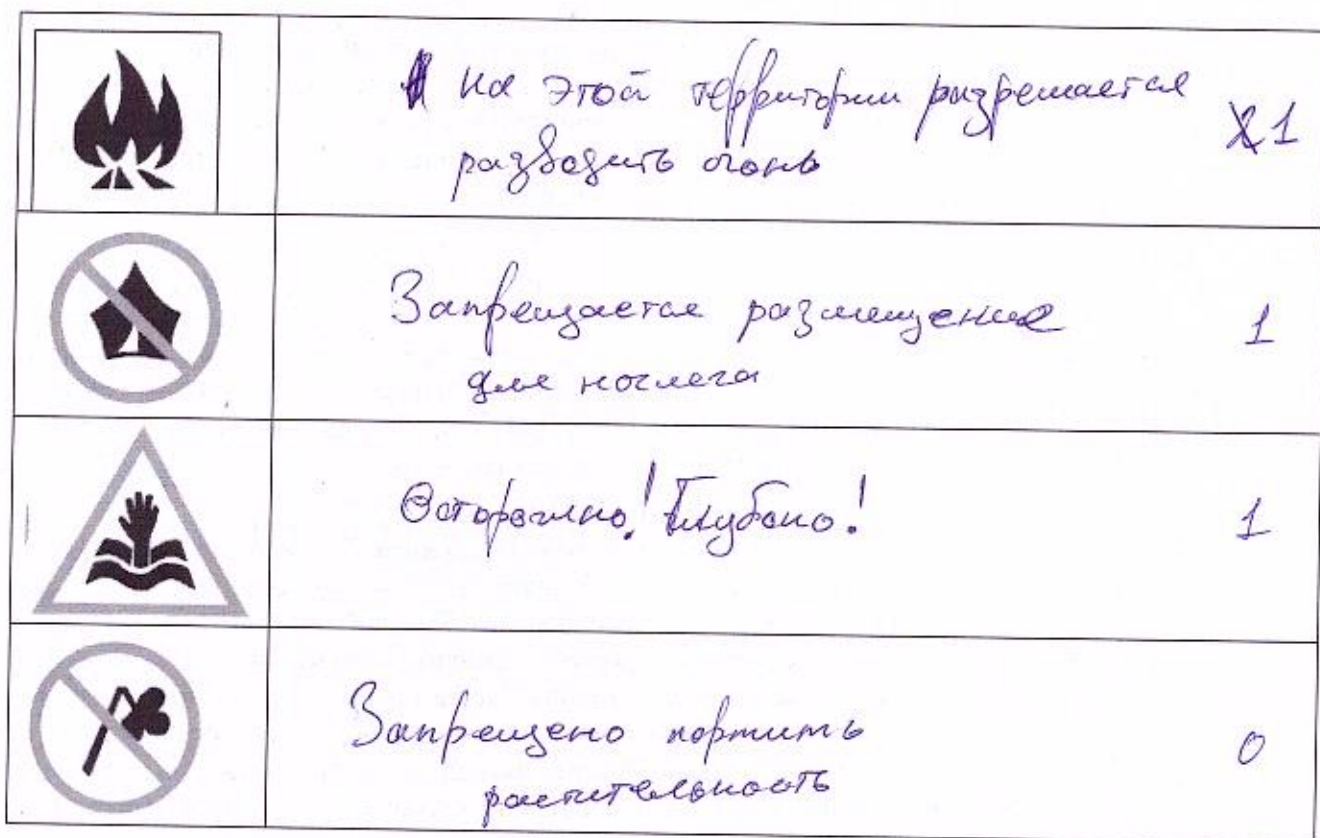 на этой территории разрешается
разводить огонь
1
Запрещается размещение
для ночлега
1
Осторожно! Глубоко!
1
Запрещено портить
растительность
0